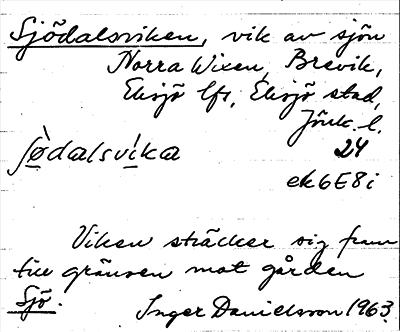 Sjödalsviken, vik av sjön
Norra Wixen, Brevik,
Eksjö lfs, Eksjö stad,
Jönk. l.
ʃø̀dalsvíka 24
ek 6E8i
Viken sträcker sig fram
till gränsen mot gården
Sjö.
Inger Danielsson 1963.